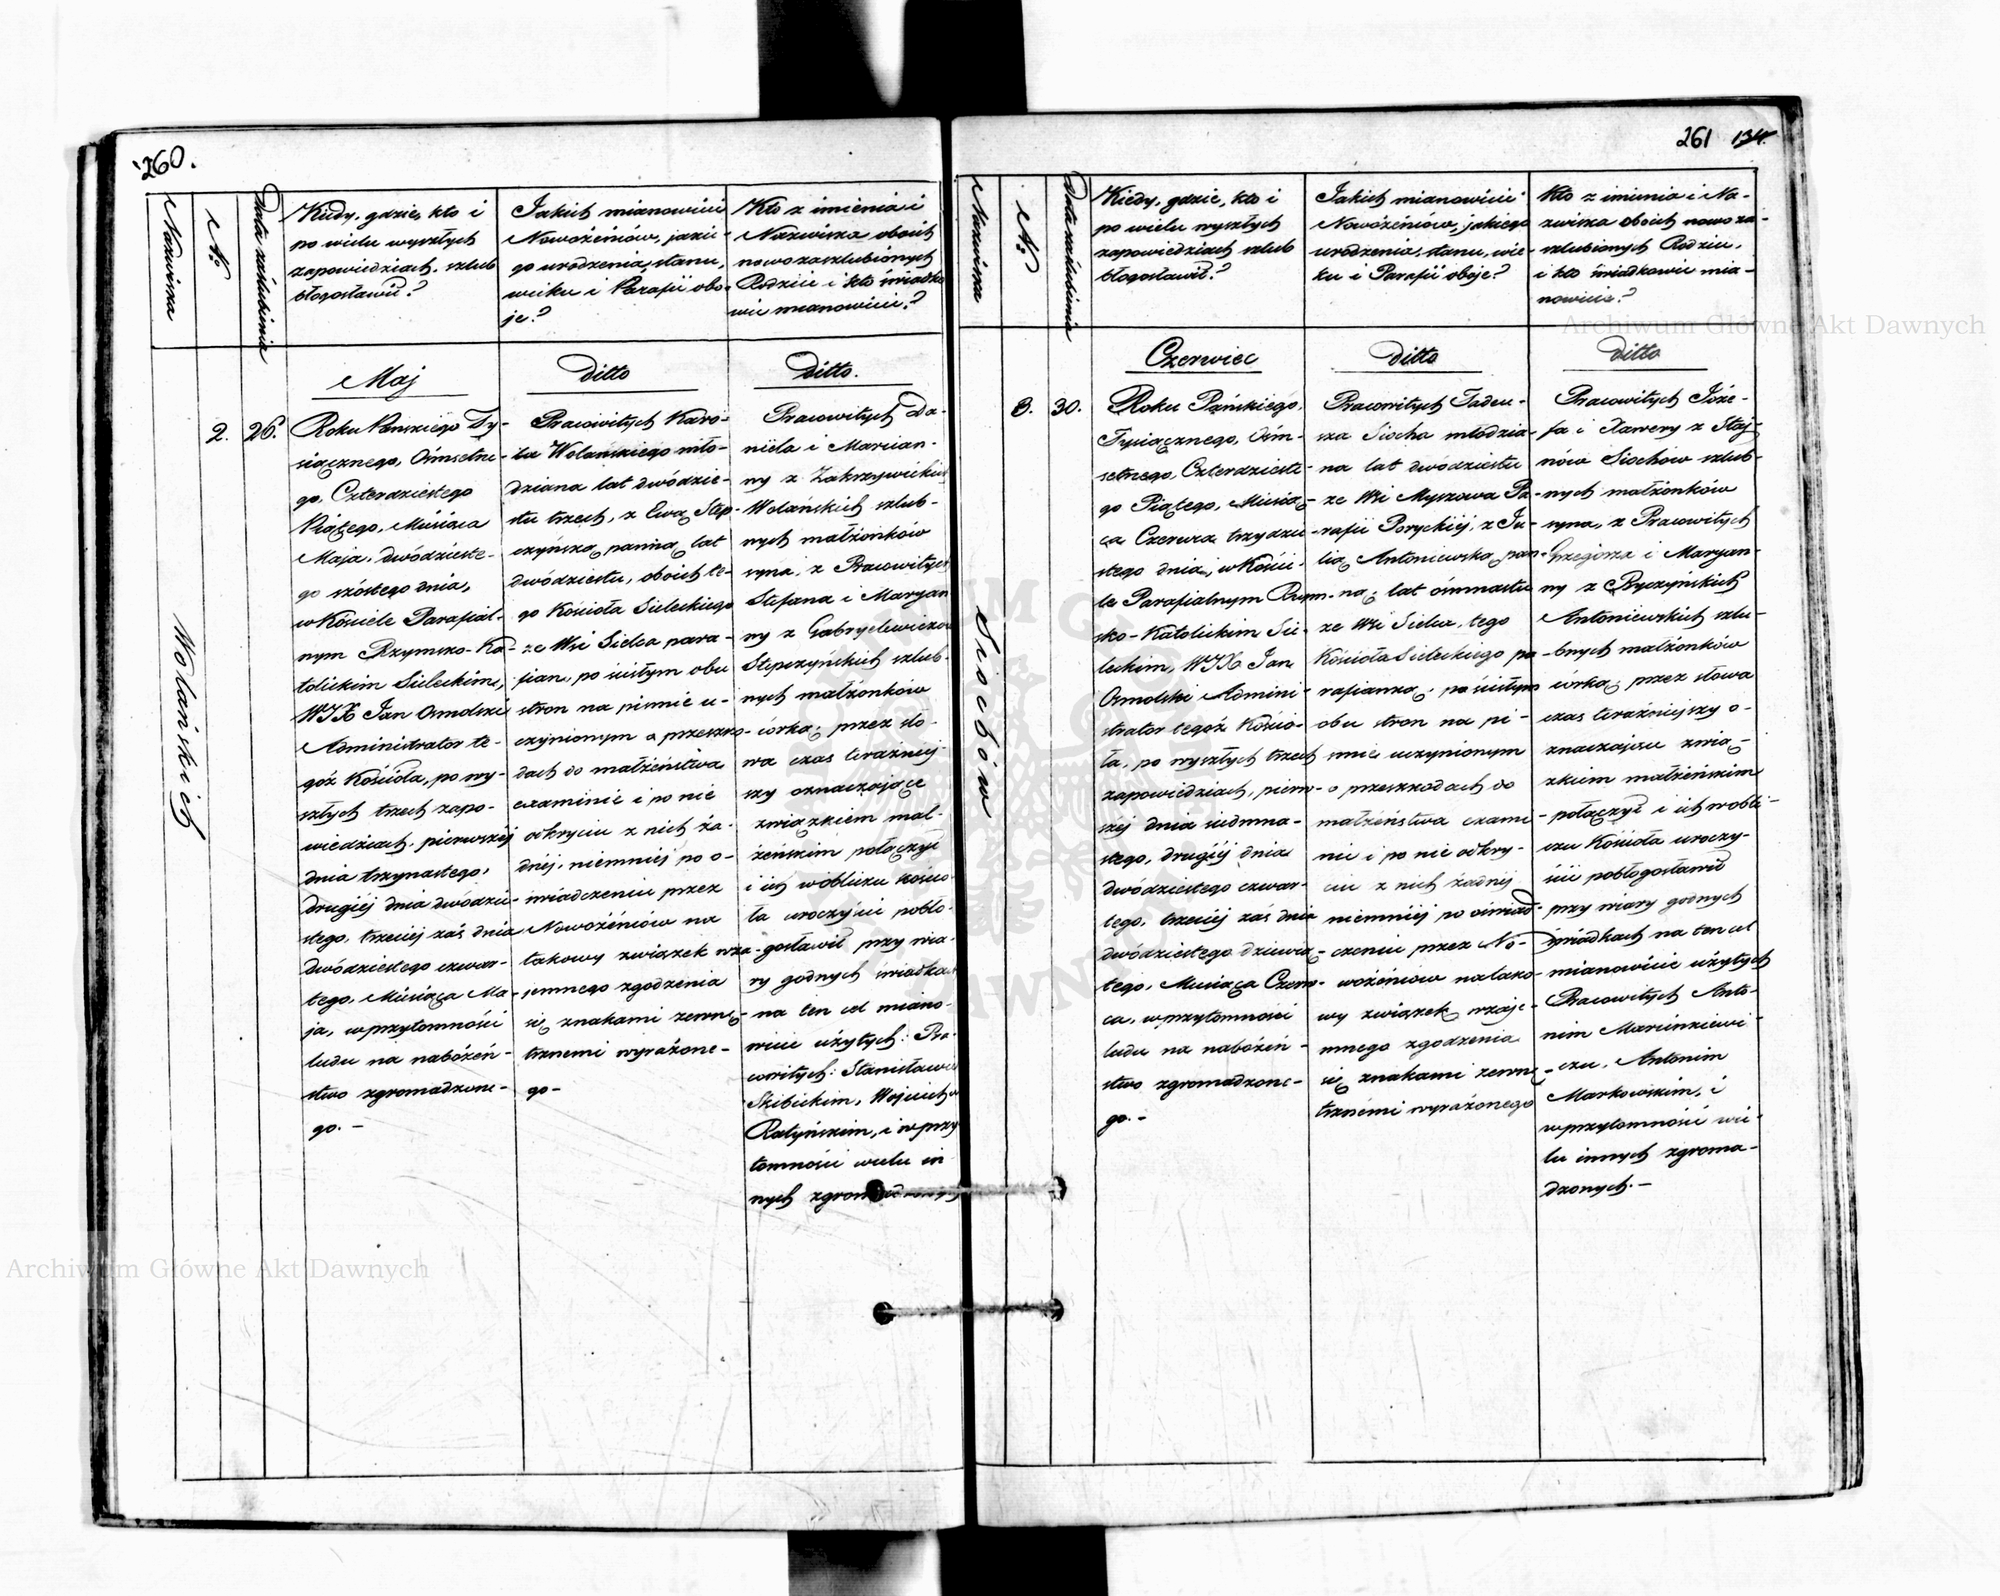 260.
Nazwiska
No
Data zaślubienia
Kiedy, gdzie, kto i
po wielu wyszłych
zapowiedziach, szlub
błogosławił?
Jakich mianowicie
Nowożeńiów, jakie-
go urodzenia, stanu,
wieku i Parafii obo-
je?
Kto z imienia i
Nazwiska oboich
nowozaszlubionych
Rodzice i kto świadko
wie mianowicie?
Maj
ditto
ditto.
Wolańskich
2.
26.
Roku Pańskiego Ty-
siącznego, Ośmsetne-
go, Czterdziestego
Piątego, Miesiąca
Maja, dwódzieste-
go szóstego dnia,
w Kościele Parafial-
nym Rzymsko-Ka-
tolickim Sieleckim,
WJX Jan Osmolski
Administrator te-
góż Kościoła, po wy-
szłych trzech zapo-
wiedziach, pierwszej
dnia trzynastego,
drugiej dnia dwódzie-
stego, trzeciej zaś dnia
dwódziestego czwar-
tego, Miesiąca Ma-
ja, w przytomności
ludu na nabożeń-
stwo zgromadzone-
go. -
Pracowitych Karo-
la Wolańskiego mło-
dziana lat dwódzie-
stu trzech, z Ewą Step-
czyńską panną lat
dwódziestu, oboich te-
go Kościoła Sieleckiego
ze Wsi Sielca para-
fian, po ścisłym obu
stron na piśmie u-
czynionym o przeszko-
dach do małżeństwa
examinie i po nie
odkryciu z nich ża-
dnej, niemniej po o-
świadczeniu przez
Nowożeńiów na
takowy związek wza-
jemnego zgodzenia
się znakami zewnę-
trznemi wyrażone-
go -
Pracowitych Da-
niela i Marian-
ny z Zakrzywickich
Wolańskich szlub-
nych małżonków
syna, z Pracowitych
Stefana i Maryan
ny z Gabryelewiczów
Stepczyńskich szlub-
nych małżonków
córką; przez sło-
wa czas teraźniej-
szy oznaczające
związkiem mał-
żeńskim połączył
i ich w obliczu kościo-
ła uroczyście pobło-
gosławił przy wia-
ry godnych świadkach
na ten cel miano-
wicie użytych: Pra-
cowitych: Stanisławie
Skibickim, Wojciechu
Ratyńskim, i w przy
tomności wielu in
nych zgromadzonych
261 134.
Nazwiska
No
Data zaślubienia
Kiedy, gdzie, kto i
po wielu wyszłych
zapowiedziach szlub
błogosławił?
Jakich mianowicie
Nowożeńiów, jakiego
urodzenia, stanu, wie-
ku i Parafii oboje?
Kto z imienia i Na-
zwiska oboich nowo za-
szlubionych Rodzice,
i kto świadkowie mia-
nowicie?
Czerwiec
ditto
ditto
Siochów
3.
30.
Roku Pańskiego,
Tysiącznego, Ośm-
setnego, Czterdzieste-
go Piątego, Miesią-
ca Czerwca trzydzie-
stego dnia, w Koście-
le Parafialnym Rzym-
sko-Katolickim Sie-
leckim, WJX Jan
Osmolski Admini-
strator tegóż Kościo-
ła, po wyszłych trzech
zapowiedziach, pierw-
szej dnia siedmna-
stego, drugiej dnia
dwódziestego czwar-
tego, trzeciej zaś dnia
dwódziestego dziewią-
tego, Miesiąca Czerw-
ca, w przytomności
ludu na nabożeń-
stwo zgromadzone-
go. -
Pracowitych Tadeu-
sza Siocha młodzia-
na lat dwódziestu
ze Wsi Myszowa Pa-
rafii Poryckiéj, z Ju-
lią Antoniewską pan-
ną, lat ośmnastu
ze Wsi Sielca, tego
Kościoła Sieleckiego pa-
rafianką; po ścisłym
obu stron na pi-
śmie uczynionym
o przeszkodach do
małżeństwa exami-
nie i po nie odkry-
ciu z nich żadnej
niemniej po oświad-
czeniu przez No-
wożeńców na tako-
wy związek wzaje-
mnego zgodzenia
się znakami zewnę-
trznemi wyrażonego
Pracowitych Józe-
fa i Xawery z Staj-
nów Siochów szlub-
nych małżonków
syna, z Pracowitych
Grzegorza i Maryan-
ny z Ryczyńskich
Antoniewskich szlu-
bnych małżonków
córką; przez słowa
czas teraźniejszy o-
znaczające zwią-
zkiem małżeńskim
połączył i ich w obli-
czu Kościoła uroczy-
ście pobłogosławił
przy wiary godnych
świadkach na ten cel
mianowicie użytych
Pracowitych Anto-
nim Marcinkiewi-
czu, Antonim
Markowskim, i
w przytomności wie-
lu innych zgroma-
dzonych. -
Archiwum Główne Akt Dawnych
Archiwum Główne Akt Dawnych